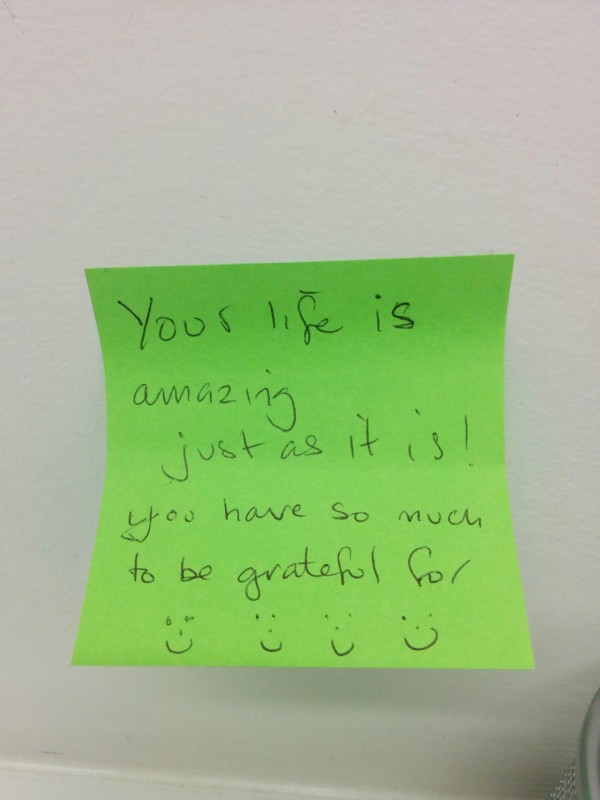 Your life is
amazing
just as it is!
you have so much
to be grateful for